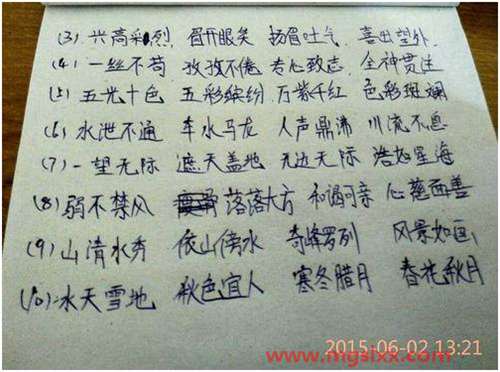 (3) 兴高采烈 眉开眼笑 扬眉吐气 喜出望外
(4) 一丝不苟 孜孜不倦 专心致志 全神贯注
(5) 五光十色 五彩缤纷 万紫千红 色彩斑斓
(6) 水泄不通 车水马龙 人声鼎沸 川流不息
(7) 一望无际 遮天盖地 无边无际 浩如星海
(8) 弱不禁风 落落大方 和谒可亲 心慈面善
(9) 山清水秀 依山傍水 奇峰罗列 风景如画
(10) 水天雪地 秋色宜人 寒冬腊月 春花秋月
2015-06-02 13:21
www.mgslxx.com